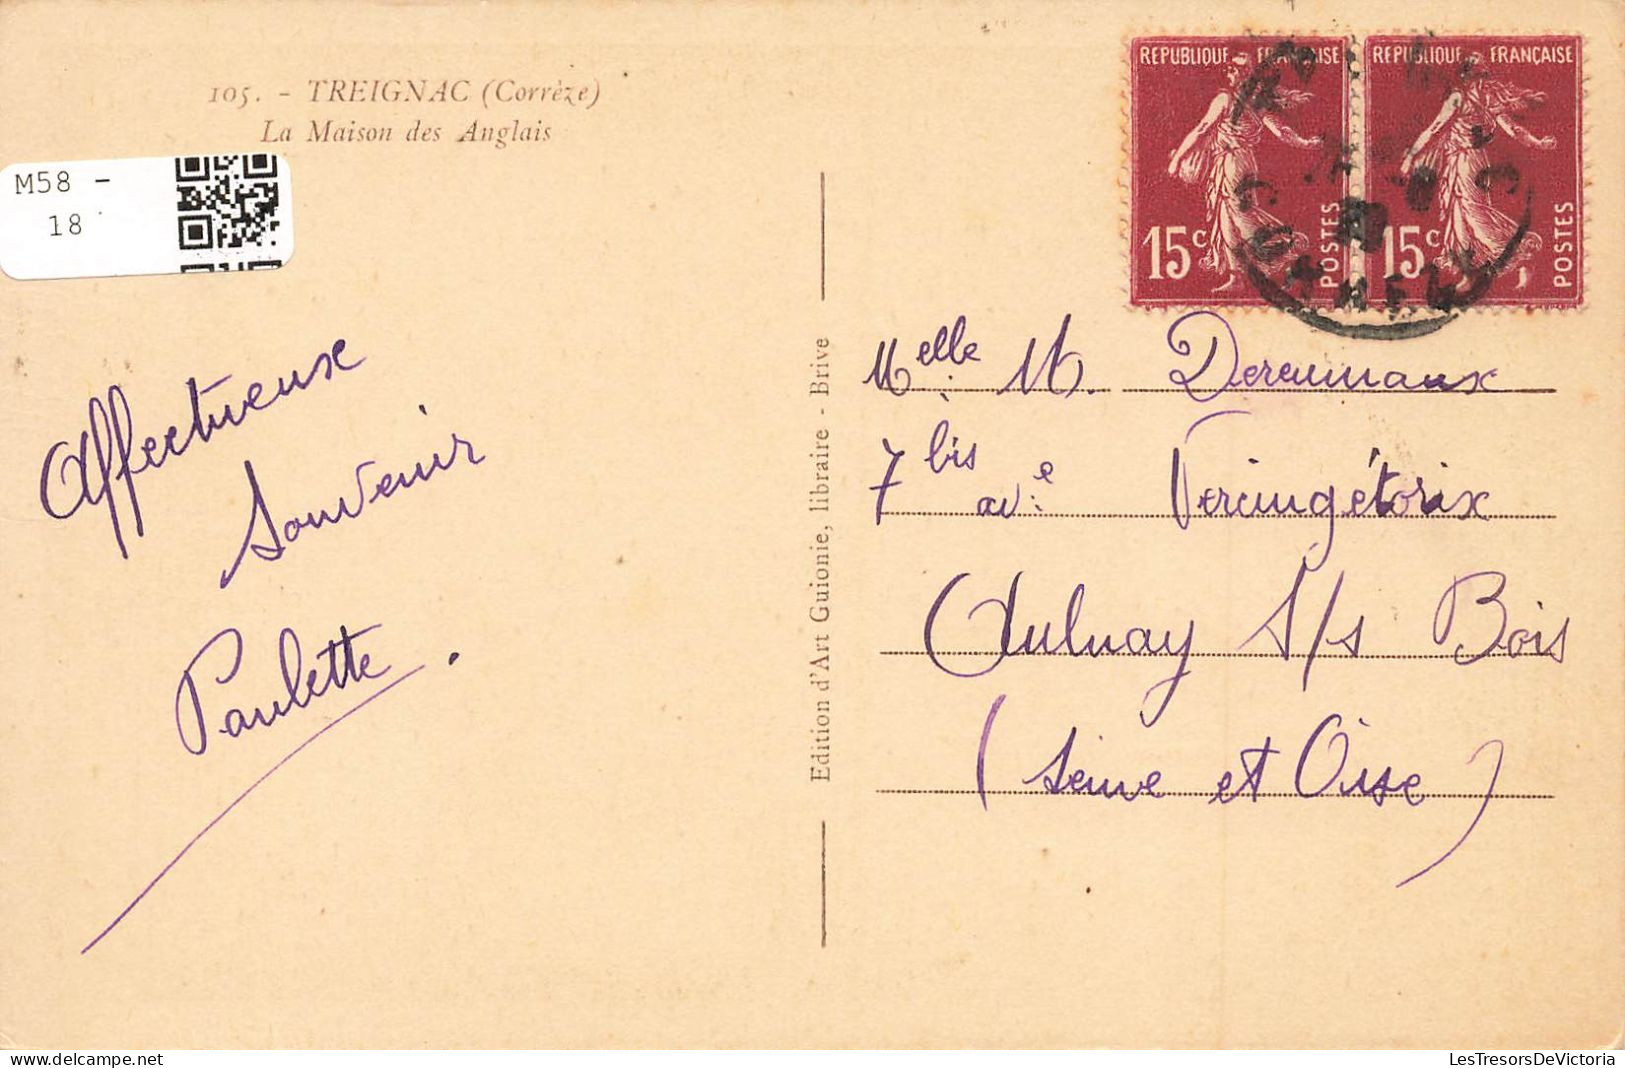 105. - TREIGNAC (Corrèze)
La Maison des Anglais
M58 -
18
Affectueux
Souvenir
Paulette.
Edition d'Art Guionie, libraire - Brive
REPUBLIQUE FRANÇAISE
15c
POSTES
REPUBLIQUE FRANÇAISE
15c
POSTES
Melle M. Dereumaux
7 bis ave Vercingétorix
Aulnay S/s Bois
(Seine et Oise)
LesTresorsDeVictoria